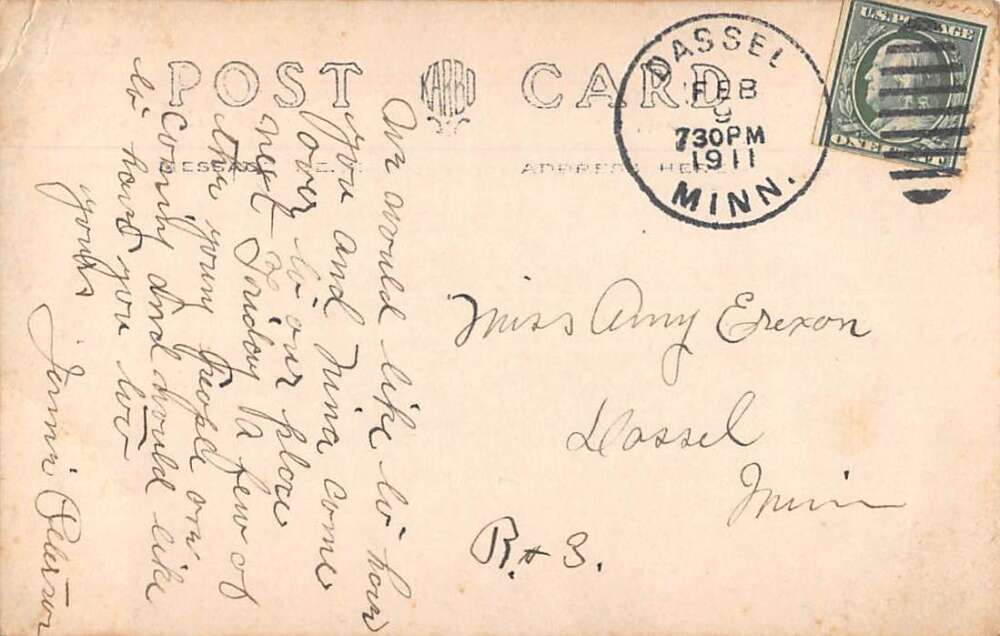 POST CARD
KARBO
MESSAGE HERE
ADDRESS HERE
DASSEL
FEB
9
730PM
1911
MINN.
U.S. POSTAGE
ONE CENT
We would like to have
you and Nina come
over to our place
next Friday a few of
the young people are
coming and would like
to have you too
yours
Jennie Peterson
Miss Amy Erexon
Dassel
Minn
R # 3.